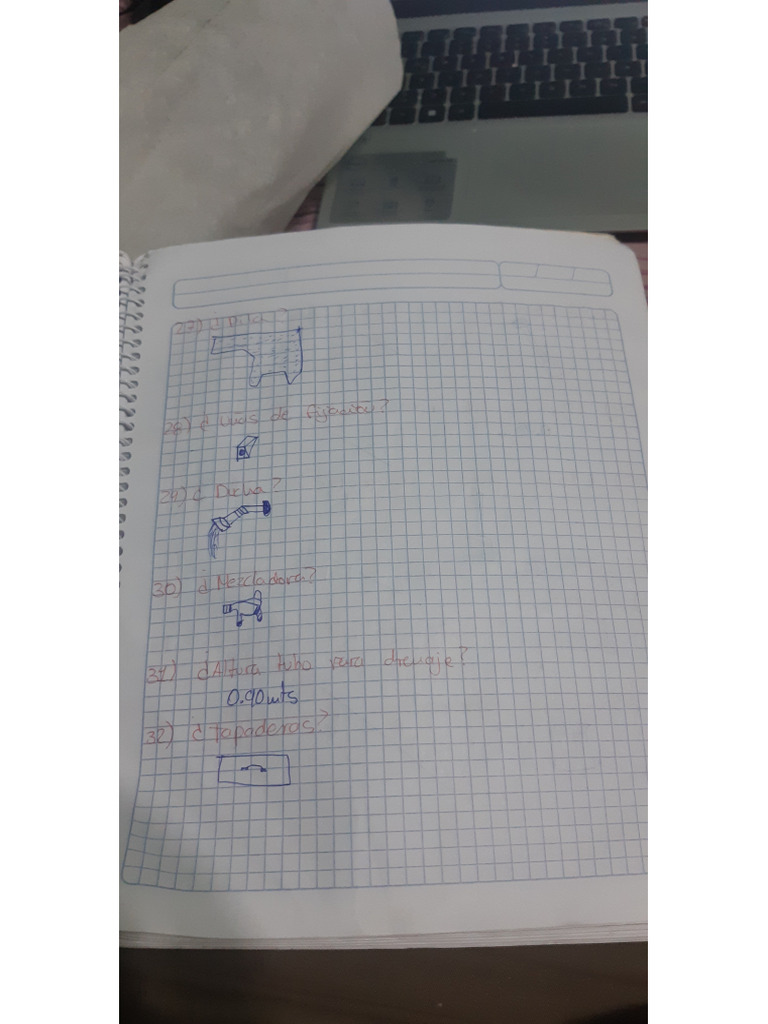 27) ¿Pila?
28) ¿Uñas de fijación?
29) ¿Ducha?
30) ¿Mezcladora?
31) ¿Altura tubo para drenaje?
0.90 mts
32) ¿Tapaderas?